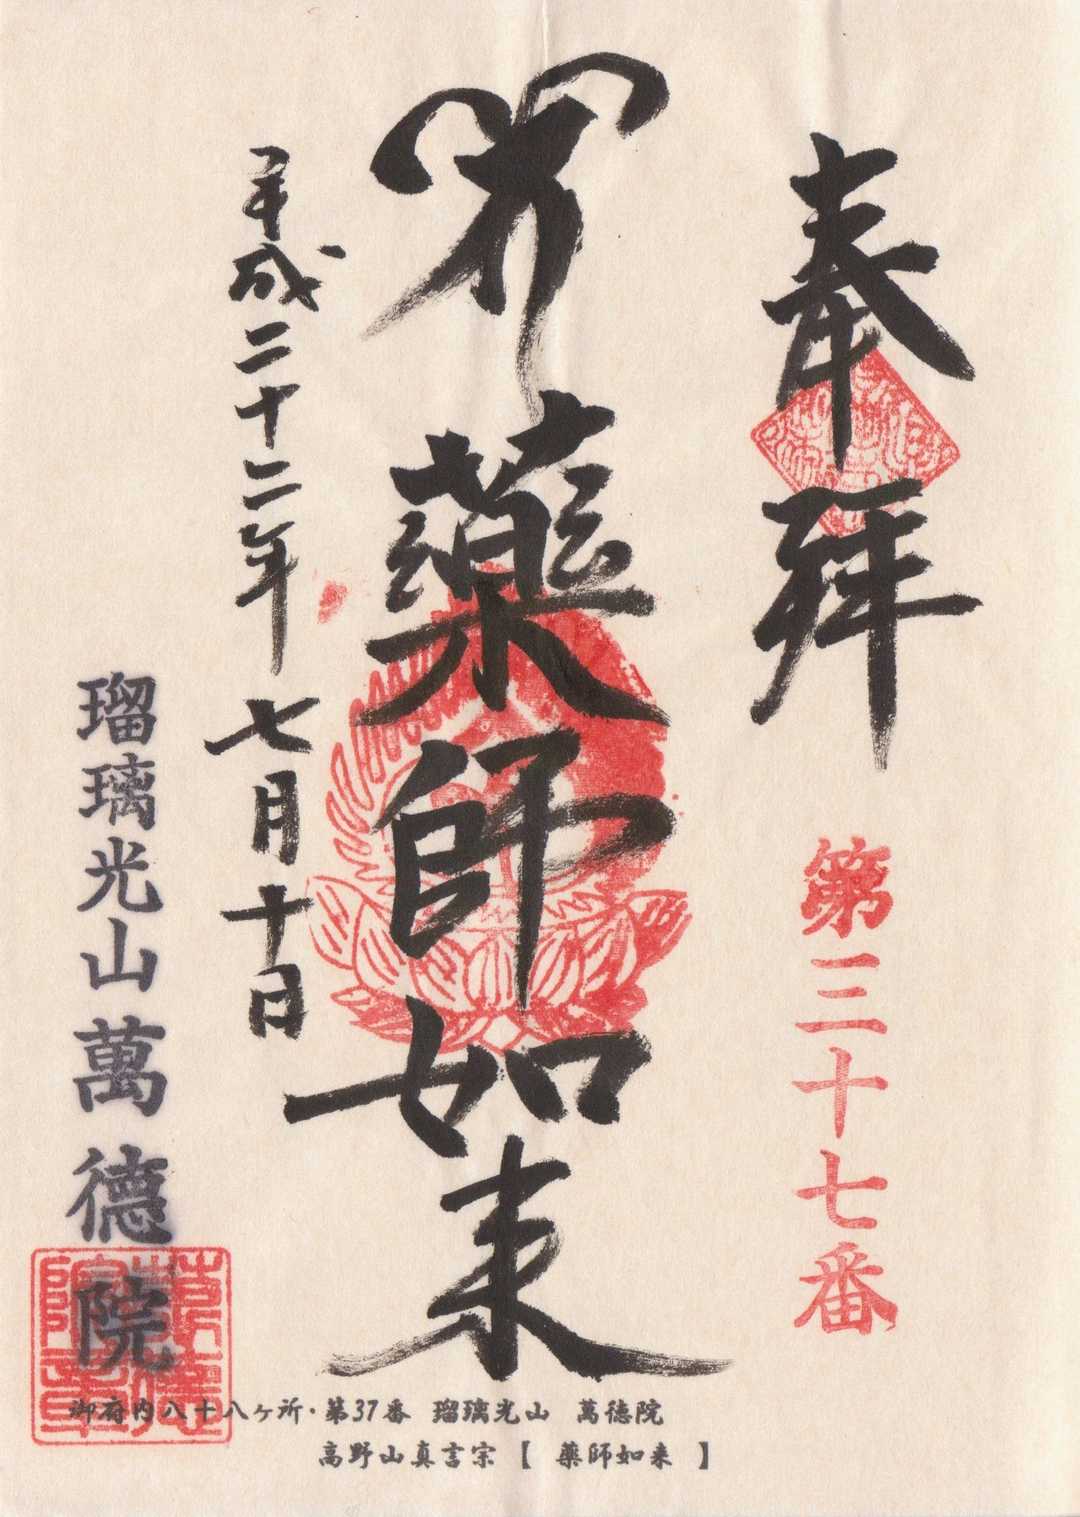 奉拝
第三十七番
薬師如来
平成二十二年七月十日
瑠璃光山萬德院
御府内八十八ヶ所・第37番 瑠璃光山 萬徳院
高野山真言宗【 薬師如来 】